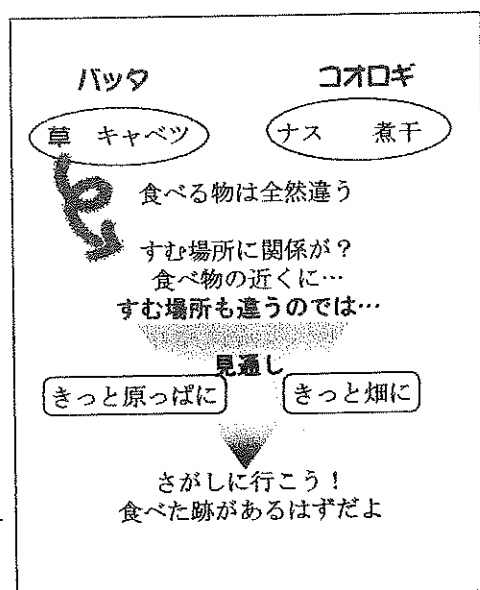 バッタ コオロギ
草 キャベツ ナス 煮干
食べる物は全然違う
すむ場所に関係が？
食べ物の近くに…
すむ場所も違うのでは…
見通し
きっと原っぱに きっと畑に
さがしに行こう！
食べた跡があるはずだよ